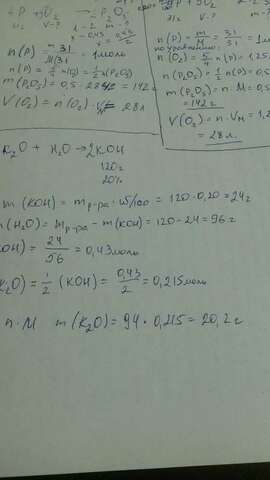 P + O₂ → P₂O₅
V-? m-?
n(P) = m/M = 31/31 = 1 моль
m(P₂O₅) = 0,5 · 284/2 = 142 г
V(O₂) = n(O₂) · = 28 л
n(P) = m/M = 31/31 = 1
по уравнению:
n(O₂) = 5/4 n(P) = 1,25
n(P₂O₅) = 1/2 n(P) = 0,5
m(P₂O₅) = n · M = 0,5
= 142 г
V(O₂) = n · Vм = 1,2
= 28 л.
K₂O + H₂O → 2KOH
120 г
20%
m (KOH) = m р-ра · w/100 = 120 · 0,20 = 24 г
m(H₂O) = m р-ра - m(KOH) = 120 - 24 = 96 г
KOH) = 24/56 = 0,43 моль
K₂O) = 1/2 (KOH) = 0,43/2 = 0,215 моль
n · M m(K₂O) = 94 · 0,215 = 20,2 г